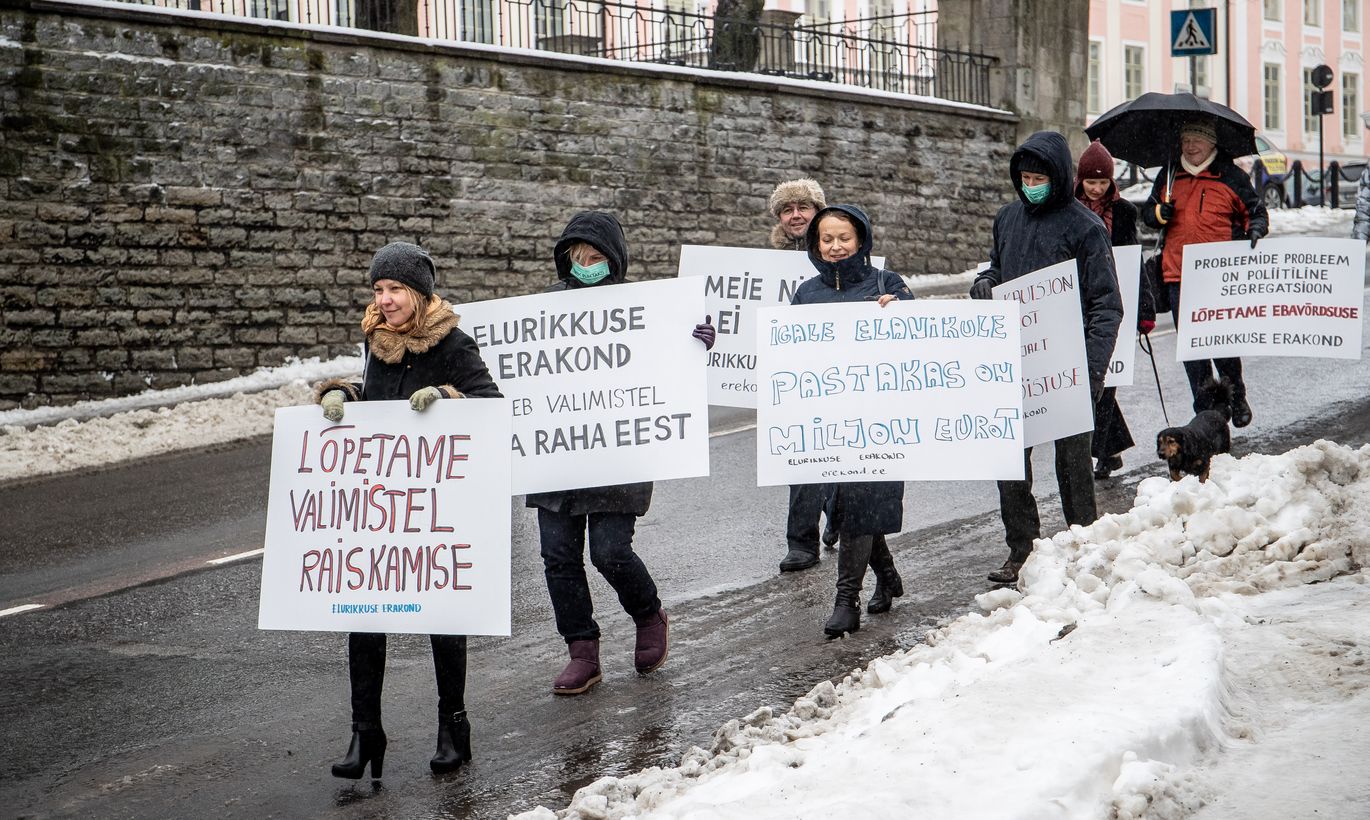 LÕPETAME
VALIMISTEL
RAISKAMISE
ELURIKKUSE ERAKOND
ELURIKKUSE
ERAKOND
VALIMISTEL
RAHA EEST
MEIE
EI
IGALE ELANIKULE
PASTAKAS ON
MILJON EUROT
ELURIKKUSE ERAKOND
erekond.ee
PROBLEEMIDE PROBLEEM
ON POLIITILINE
SEGREGATSIOON
LÕPETAME EBAVÕRDSUSE
ELURIKKUSE ERAKOND